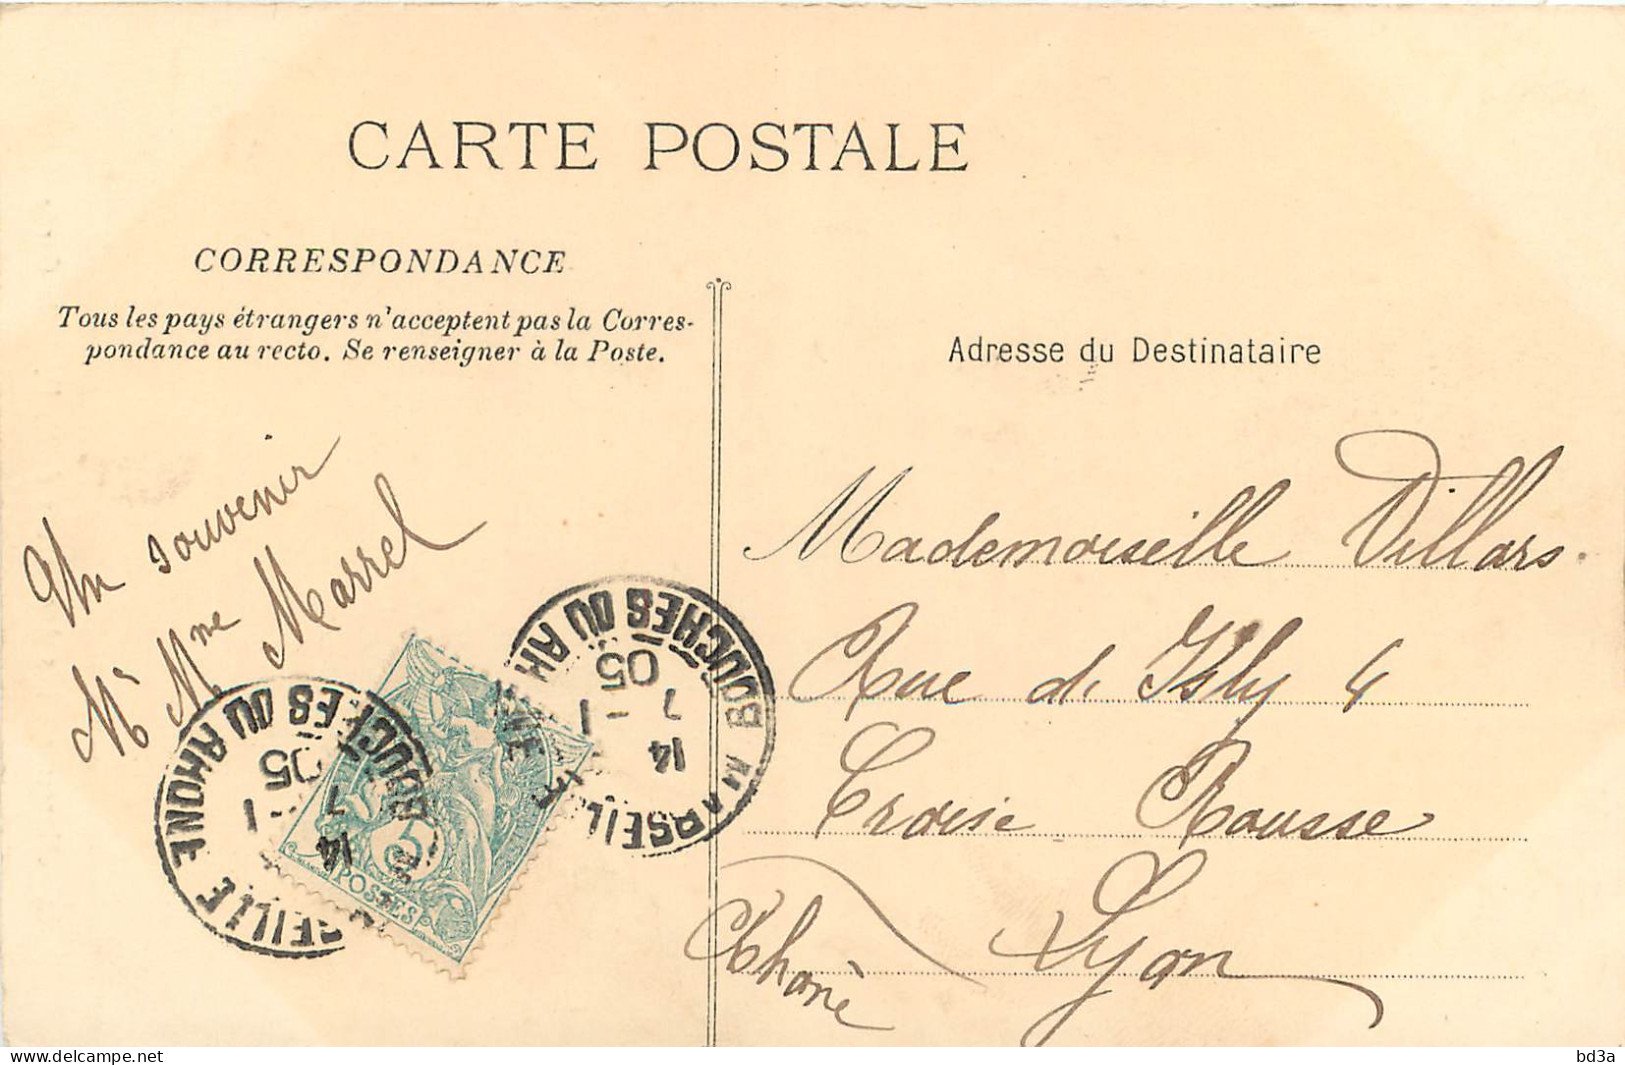 CARTE POSTALE
CORRESPONDANCE
Tous les pays étrangers n'acceptent pas la Corres-
pondance au recto. Se renseigner à la Poste.
Adresse du Destinataire
Un souvenir
Mr Mme Marrel
Mademoiselle Villars.
Rue d. Isly 4
Croix Rousse
Lyon
Rhone
MARSEILLE BOUCHES DU RHONE
14
7 - 1
05
MARSEILLE BOUCHES DU RHONE
14
7 - 1
05
5
POSTES
www.delcampe.net
bd3a